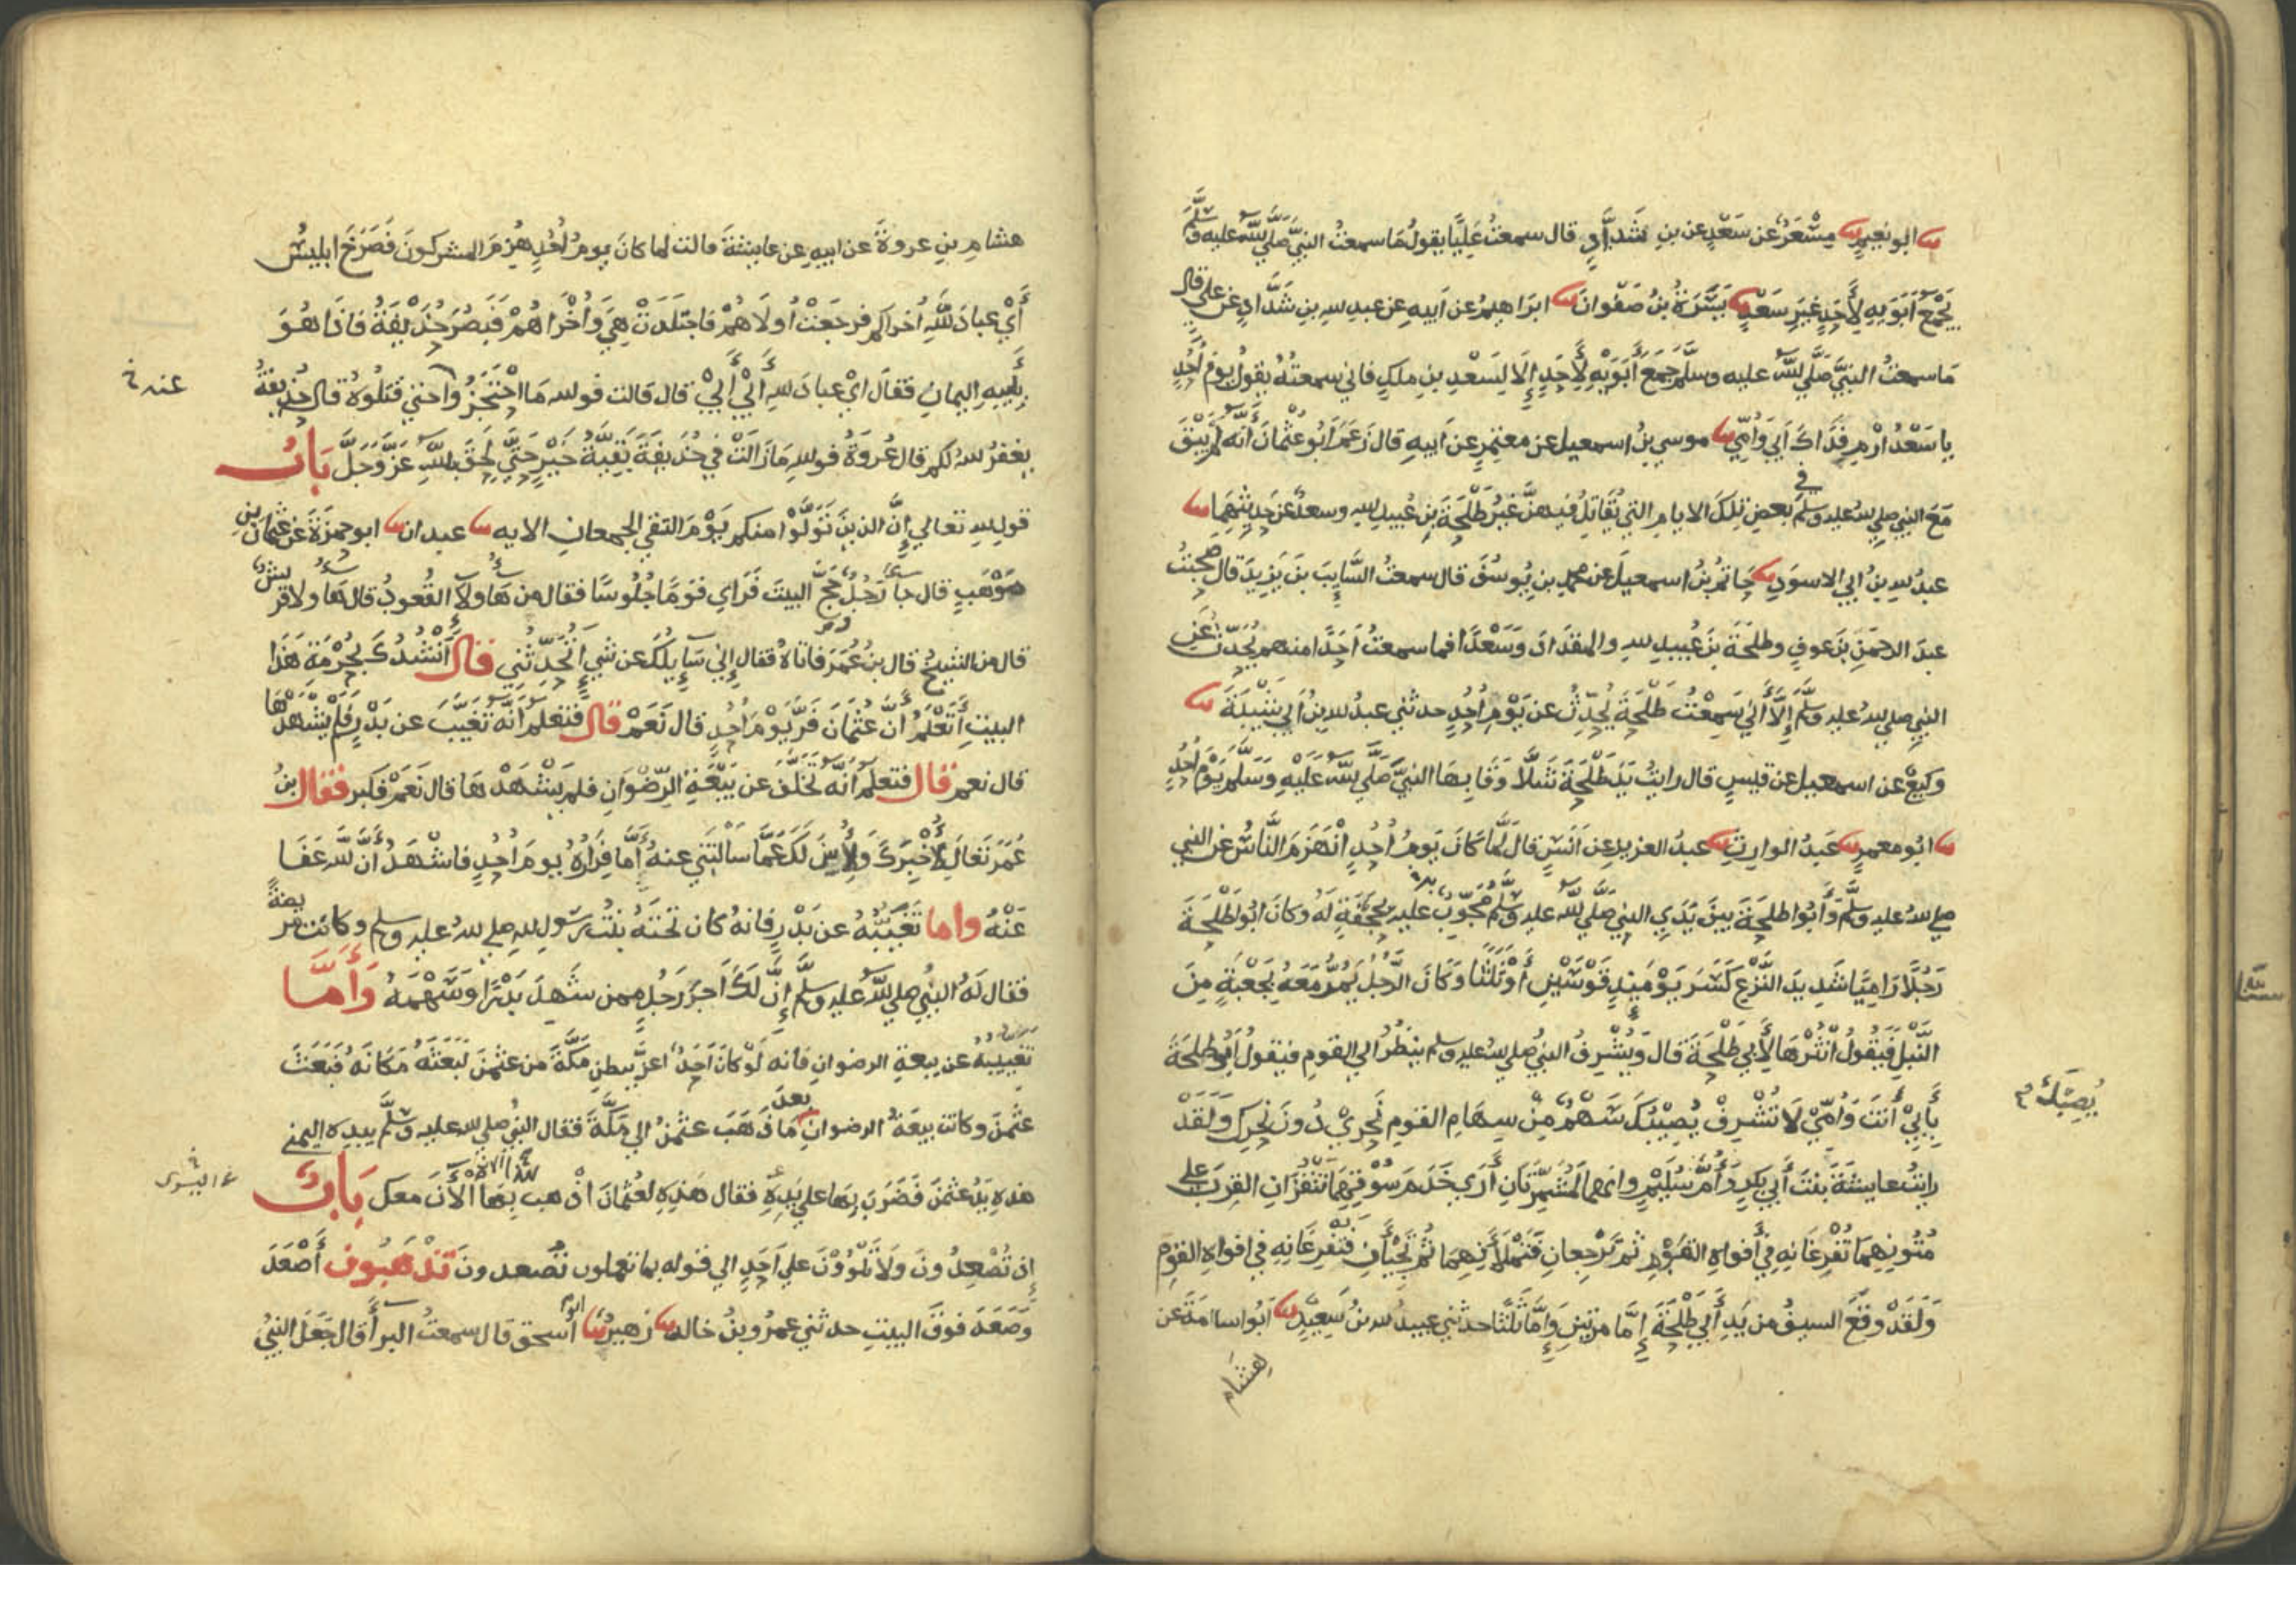 نا ابو نعيم نا مِسْعَرٌ عن سَعْدٍ عن بن شَدَّادٍ قال سمعتُ عَلِيًّا يقولُ مَا سمعتُ النبيَّ صَلي اللهُ عليه وسَلَّم
يَجْمَعُ اَبَوَيهِ لأَحَدٍ غَيرَ سَعْدٍ نا يَسَرَةُ بنُ صَفْوانَ نا ابرَاهيمُ عن اَبيهِ عن عبدِ اللهِ بنِ شَدَّادٍ عن علي قال
مَا سمعتُ النبيَّ صَلَّي اللهُ عليه وسلَّم جَمَعَ اَبَوَيْهِ لِأَحَدٍ إِلَا لِسَعْدِ بنِ ملكٍ فاني سمعتُهُ يقولُ يومَ اُحُدٍ
يا سَعْدُ ارْمِ فِدَاكَ اَبي وَامّي نا موسي بنُ اسمعيل عن معتمِرٍ عن اَبيهِ قال زَعَمَ اَبُو عُثْمانَ اَنَّه لَم يَبْقَ
مَعَ النبي صلي الله عليه وسلم في بعضِ تِلكَ الايامِ التي يُقَاتِلُ فيهنَّ غيرُ طَلْحَةَ بنِ عُبيدِ اللهِ وسعدٌ عن حَدِيثِهِمَا نا
عبدُ اللهِ بنُ ابي الاسوَدِ نا حَاتِمُ بنُ اسمعيلَ عن محمدِ بنِ يُوسُفَ قال سمعتُ السَّايِبَ بنَ يَزِيدَ قال صحبْتُ
عبدَ الرحمَنِ بنَ عوفٍ وطلحَةَ بنَ عُبيدِ اللهِ والمقدَادَ وَسَعْدًا فما سمعتُ اَحَدًا منهم يُحَدِّثُ عَنِ
النبي صلي اللهُ عليه وسلَّم إِلَّا أَنّي سَمِعْتُ طَلْحَةَ يُحَدِّثُ عن يَوْمِ اُحُدٍ حدثني عبدُ اللهِ بنُ اَبي شَيْبَةَ نا
وكيعٌ عن اسمعيل عن قيسٍ قال رايتُ يَدَ طَلْحَةَ شَلَّا وَقَا بِهَا النبيَّ صَلَّي اللهُ عَلَيْهِ وَسَلَّم يَوْمَ اُحُدٍ
نا ابُو معمرٍ نا عَبدُ الوارِثِ نا عبدُ العزيزِ عن اَنَسٍ قَالَ لَمَّا كَانَ يَومُ اُحُدٍ انْهَزَمَ النَّاسُ عن النبي
صلي اللهُ عليه وسلَّم وَأَبُوا طلحَةَ بينَ يَدَيِ النبي صَلَّي اللهُ عليه وسلَّم مُجَوِّبٌ عليه بحَجَفَةٍ لَه وكانَ ابُو طَلْحَةَ
رَجُلًا رَامِيًا شَدِيدَ النَّزْعِ كَسَرَ يَوْمَئِذٍ قَوْسَيْنِ أَوْ ثَلَثًا وَكَانَ الرَّجُلُ يَمُرُّ مَعَهُ بِجَعْبَةٍ مِنَ
النَّبْلِ فَيَقُولُ انْثُرْهَا لِأَبِي طَلْحَةَ قَالَ وَيُشْرِفُ النبيُّ صلي الله عليه وسلم ينظُرُ الي القومِ فيقولُ اَبُو طلحَةَ
بِأَبِي أَنْتَ وَاُمّي لَا تُشْرِفْ يُصِيْبُكَ سَهْمٌ مِنْ سِهَامِ القومِ نَحْرِيْ دُونَ نَحْرِكَ وَلَقَدْ
يُصِبْكَ
رايتُ عايشَةَ بنتَ أَبي بكرٍ وَأُمَّ سُلَيْمٍ وانهما لَمُشَمِّرَتَانِ أَرَي خَدَمَ سُوقِهِمَا تَنْقُزَانِ القِرَبَ علي
مُتُونِهِمَا تُفْرِغَانِهِ فِي أفواهِ القَوْمِ ثم تَرْجِعانِ فَتَمْلَأَنِهِمَا ثُمَّ تَجِيْأَنِ فَتُفْرِغَانِهِ في افواهِ القومِ
وَلَقَدْ وقَعَ السيفُ من يَدِ أَبِي طَلْحَةَ إِمَّا مرتينِ وَإِمَّا ثَلَثًا حدثني عبيدُ اللهِ بنُ سَعِيدٍ نا اَبُو اسامَةَ عن
هشَام
هشام بنِ عروةَ عن ابيهِ عن عايشةَ قالت لما كانَ يومُ اُحُدٍ هُزِمَ المشركونَ فَصَرَخَ ابليسُ
أَيْ عبادَ اللهِ اُخراكم فرجَعَتْ اُولَاهُمْ فاجتَلَدَتْ هِيَ وَاُخْرَاهُمْ فَبَصُرَ حُذَيْفَةُ فاذَا هُوَ
بِأَبِيهِ اليمانِ فقالَ اَيْ عبادَ اللهِ أَبِيْ أَبِيْ قال قالت فوالله مَا احْتَجَزُوا حتي قَتَلُوهُ قال حُذيفةُ
عنه خ
يغفرُ اللهُ لكم قال عُروَةُ فوالله مَا زَالَتْ في حُذَيفَةَ بَقِيَّةُ خَيْرٍ حَتَّي لَحِقَ باللهِ عَزَّ وَجَلَّ بَابُ
قولِ اللهِ تعالي إِنَّ الذينَ تَوَلَّوْا منكم يَوْمَ التقي الجمعانِ الايه نا عبدان نا ابو حمزَةَ عن عثمانَ بنِ
مَوْهَبٍ قال جَا رَجُلٌ حَجَّ البيتَ فَرَاي قومًا جُلُوسًا فقال من هَاولَاءِ القُعودُ قال هَاولَاءِ قريشٌ
قال من الشيخُ قال بنُ عُمَرَ فاتاهُ فقال إِنِّي سَايِلُكَ عن شيءٍ أَتُحَدِّثُنِي قال أَنْشُدُكَ بِحُرْمَةِ هَذَا
البيتِ أَتَعْلَمُ أَنَّ عُثْمَانَ فَرَّ يَوْمَ اُحُدٍ قال نَعَمْ قال فتعلمُ أَنَّه تَغَيَّبَ عن بَدْرٍ فَلَمْ يَشْهَدْهَا
قال نعم قال فتعلمُ أَنَّه تَخَلَّفَ عن بَيْعَةِ الرِّضْوَانِ فلم يَشْهَدْهَا قال نَعَمْ فكبر فقال بنُ
عُمَرَ تعَالَ لِأُخْبِرَكَ وَلِأُبَيِّنَ لَكَ عَمَّا سَأَلْتَنِي عنهُ أَمَّا فِرَارُهُ يومَ اُحُدٍ فاشْهَدُ أَنَّ اللهَ عَفَا
عَنْهُ واما تَغَيُّبُهُ عن بَدْرٍ فانهُ كان تَحْتَهُ بنتُ رسُولِ اللهِ صلي اللهُ عليه وسلم وكانت مريضةً
فقال لَهُ النبيُّ صلي اللهُ عليه وسلَّم إِنَّ لَكَ أَجرَ رَجُلٍ ممن شَهِدَ بَدْرًا وَسَهْمَهُ وَأَمَّا
تغيبهُ عن بيعةِ الرضوانِ فانه لَوْ كانَ اَحَدٌ اعزَّ ببطنِ مَكَّةَ من عثمنَ لَبَعَثَهُ مَكَانَهُ فَبَعَثَ
عثمنَ وكانت بيعَةُ الرضوانِ بعدَ مَا ذَهَبَ عثمنُ الي مَكَّةَ فقال النبيُّ صلي الله عليه وسلَّم بيده اليمني
هذهِ يَدُ عثمنَ فَضَرَبَ بِهَا علي يَدِهِ فقال هَذِهِ لعُثمَانَ اذهب بِهَا الآنَ معك بَابٌ
إِذ تُصْعِدُونَ وَلَا تَلْوُوْنَ علي اَحَدٍ الي قوله بما تعملون تُصعدونَ تذهَبُون أَصْعَدَ
وَصَعَدَ فوقَ البيتِ حدثني عمرُو بنُ خالد نا زهيرٌ نا ابو اسحق قال سمعتُ البرأَ قال جَعَلَ النبيُّ